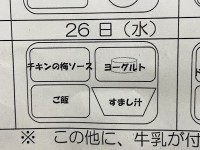 26日（水）
チキンの梅ソース
ヨーグルト
ご飯
すまし汁
※ この他に、牛乳が付